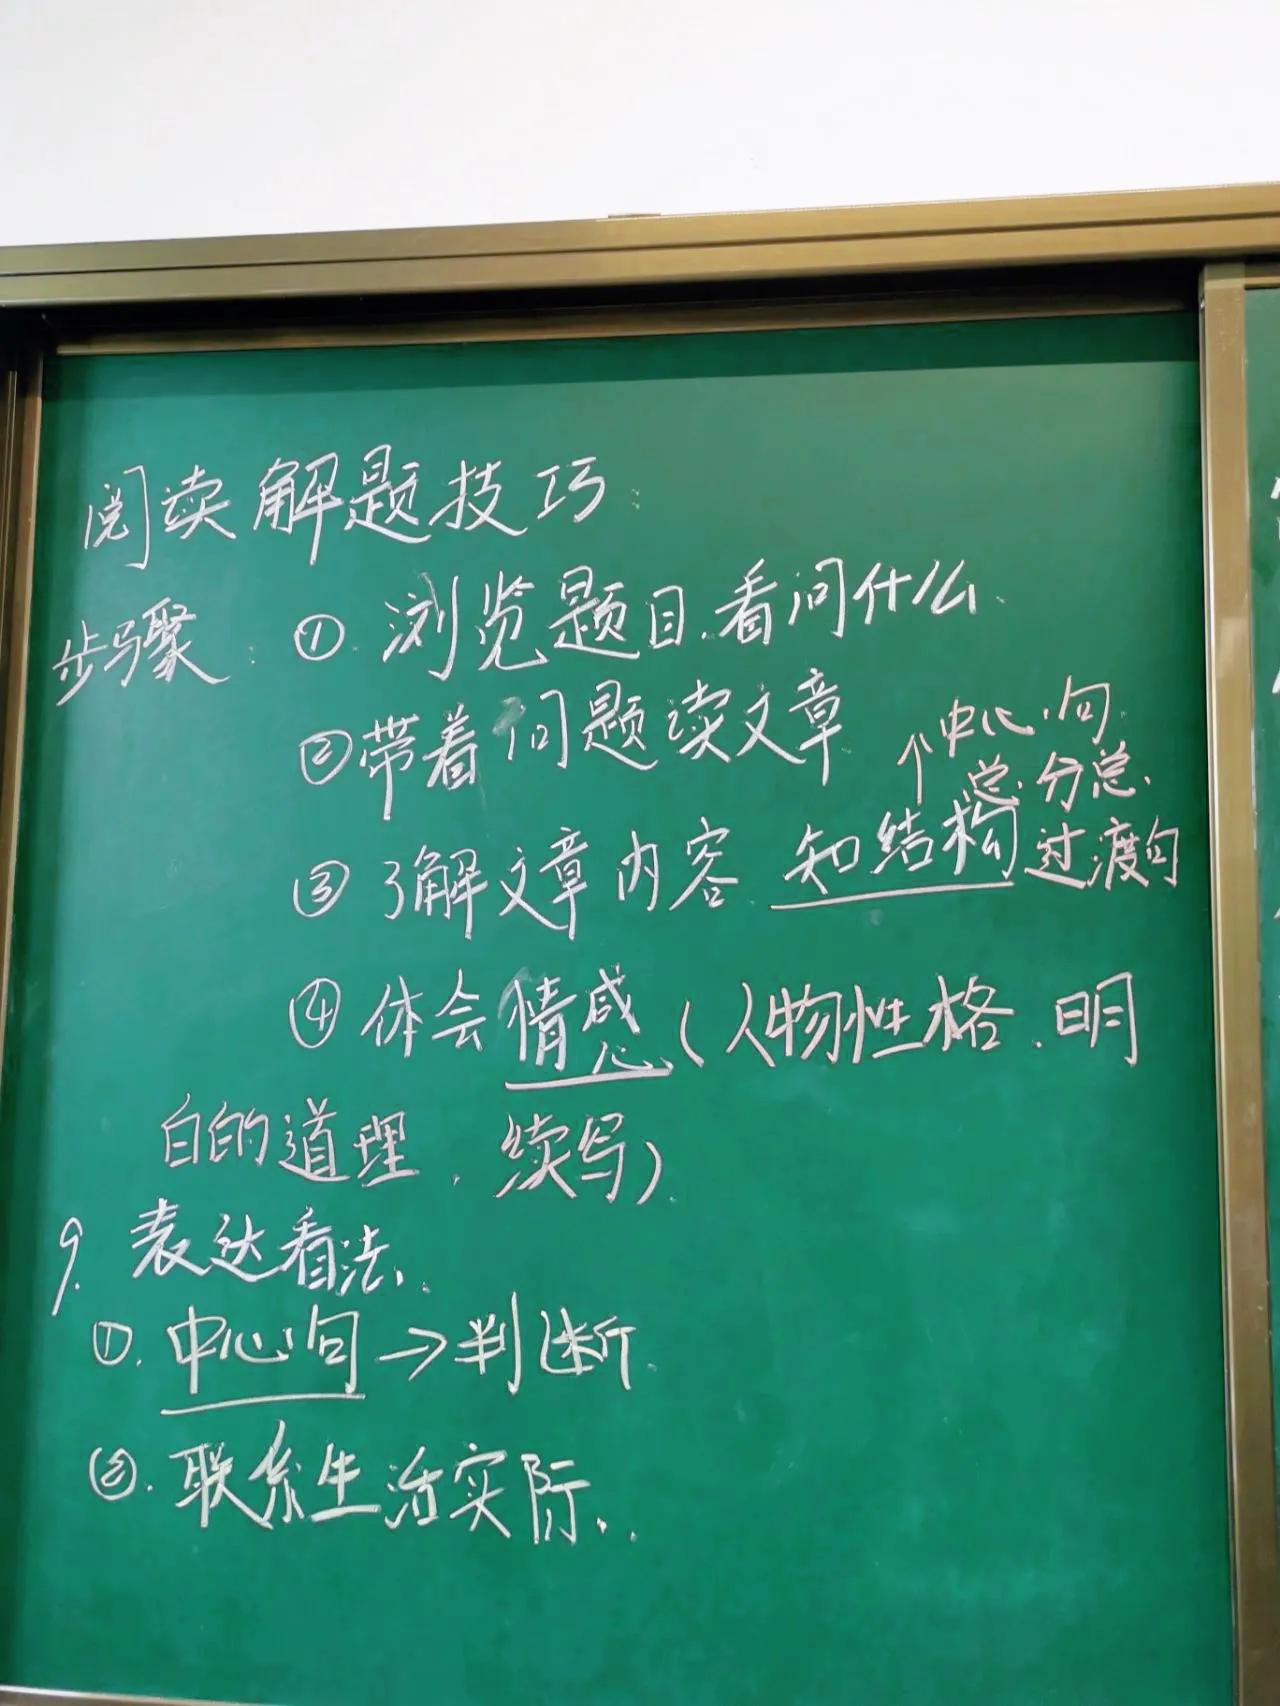 阅读解题技巧:
步骤: ①.浏览题目.看问什么.
②带着问题读文章
↑中心句.
总.分总.
③了解文章内容 知结构 过渡句
④体会情感(人物性格.明
白的道理.续写).
9.表达看法.
①.中心句→判断.
②.联系生活实际.